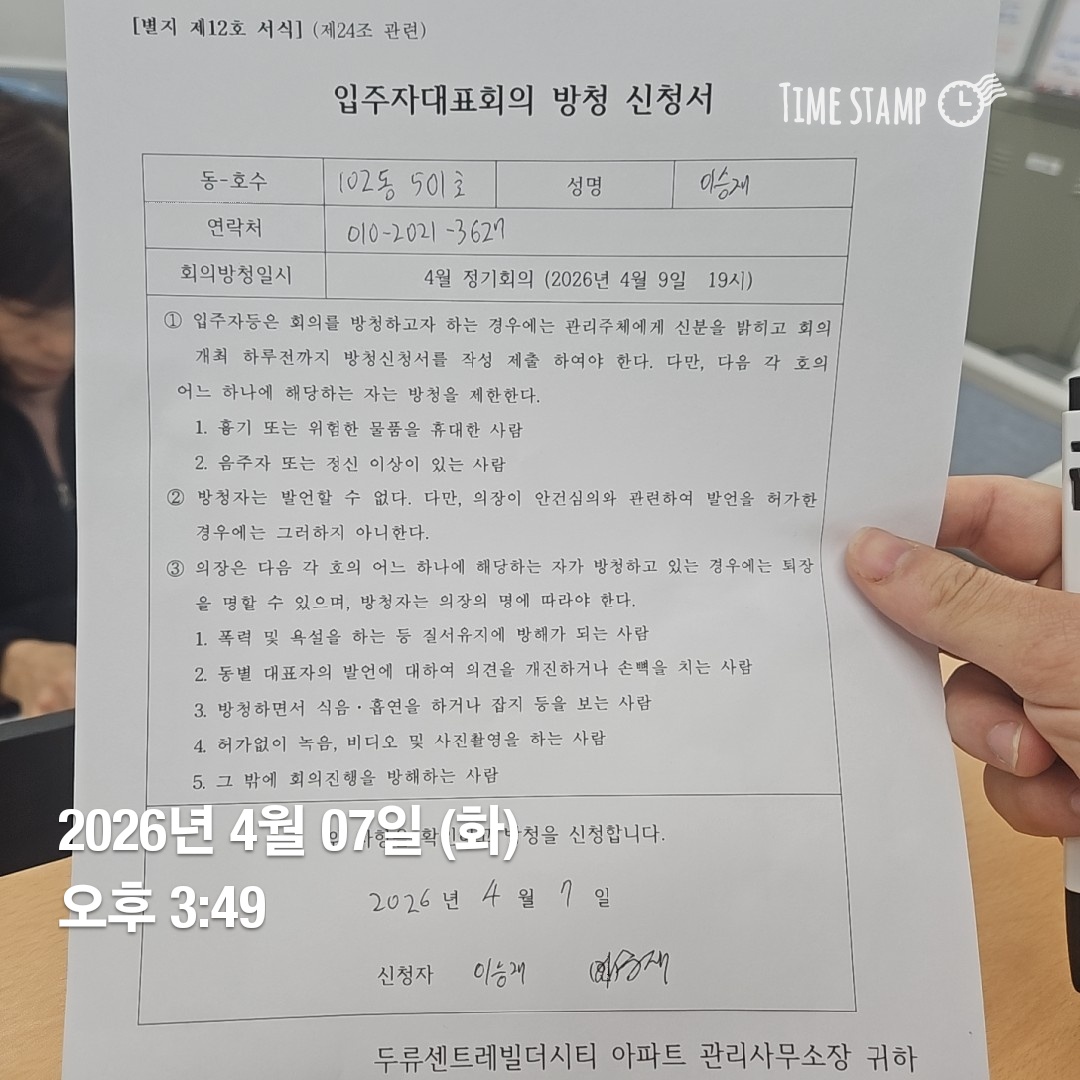 [별지 제12호 서식] (제24조 관련)
입주자대표회의 방청 신청서
TIME STAMP
동-호수 102동 501호 성명 이승재
연락처 010-2021-3627
회의방청일시 4월 정기회의 (2026년 4월 9일 19시)
① 입주자등은 회의를 방청하고자 하는 경우에는 관리주체에게 신분을 밝히고 회의
개최 하루전까지 방청신청서를 작성 제출 하여야 한다. 다만, 다음 각 호의
어느 하나에 해당하는 자는 방청을 제한한다.
1. 흉기 또는 위험한 물품을 휴대한 사람
2. 음주자 또는 정신 이상이 있는 사람
② 방청자는 발언할 수 없다. 다만, 의장이 안건심의와 관련하여 발언을 허가한
경우에는 그러하지 아니한다.
③ 의장은 다음 각 호의 어느 하나에 해당하는 자가 방청하고 있는 경우에는 퇴장
을 명할 수 있으며, 방청자는 의장의 명에 따라야 한다.
1. 폭력 및 욕설을 하는 등 질서유지에 방해가 되는 사람
2. 동별 대표자의 발언에 대하여 의견을 개진하거나 손뼉을 치는 사람
3. 방청하면서 식음·흡연을 하거나 잡지 등을 보는 사람
4. 허가없이 녹음, 비디오 및 사진촬영을 하는 사람
5. 그 밖에 회의진행을 방해하는 사람
2026년 4월 07일 (화)
방청을 신청합니다.
오후 3:49
2026 년 4 월 7 일
신청자 이승재
두류센트레빌더시티 아파트 관리사무소장 귀하